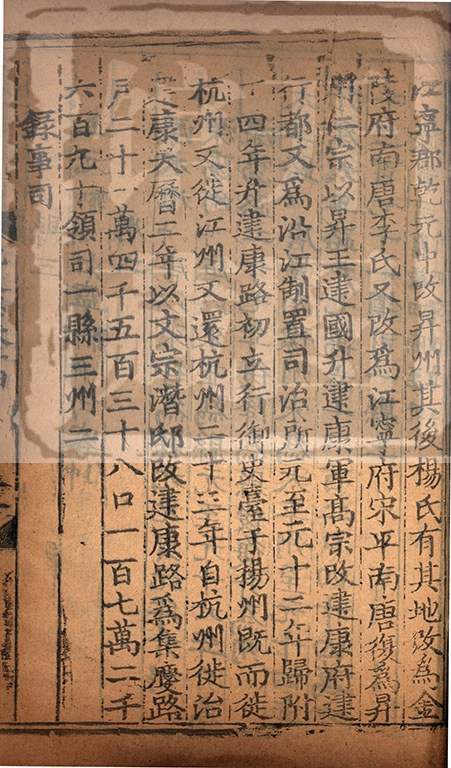 江寧郡乾元中改昇州其後楊氏有其地改為金
陵府南唐李氏又改爲江寧府宋平南唐復爲昇
州仁宗以昇王建國升建康軍髙宗改建康府建
行都又爲沿江制置司治所元至元十二年歸附
十四年升建康路初立行御史臺于揚州既而徙
杭州又徙江州又還杭州二十三年自杭州徙治
建康天曆二年以文宗潛邸改建康路爲集慶路
戶二十一萬四千五百三十八口一百七萬二千
六百九十領司一縣三州二
錄事司